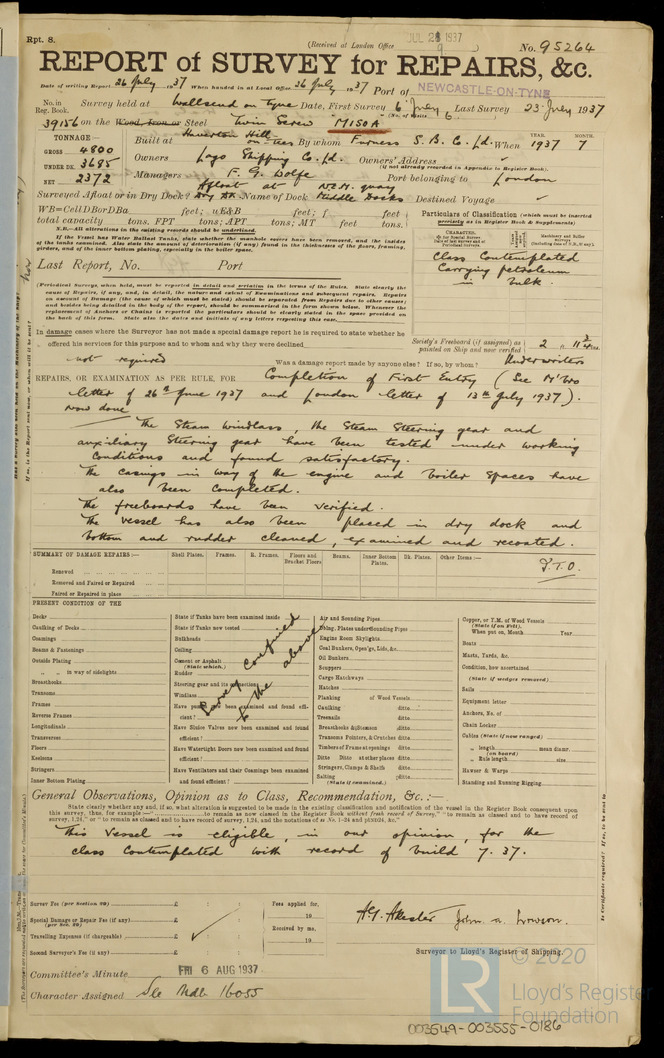 Rpt. 8.
(Received at London Office
JUL 28 1937
No. 95264
REPORT of SURVEY for REPAIRS, &c.
Date of writing Report 26 July 1937 When handed in at Local Office 26 July 1937 Port of NEWCASTLE-ON-TYNE
No. in Reg. Book. Survey held at Wallsend on Tyne Date, First Survey 6 July Last Survey 23 July 1937
(No. of Visits 6
39156 on the Wood, Iron or Steel Twin Screw "MISOA"
TONNAGE:— Built at Haverton Hill-on-Tees By whom Furness S. B. Co. Ld. When YEAR. 1937 MONTH. 7
GROSS 4800
UNDER DK. 3685
NET 2372
Owners Lago Shipping Co. Ld. Owners' Address
(if not already recorded in Appendix to Register Book).
Managers F. G. Wolfe Port belonging to London
Surveyed Afloat or in Dry Dock? Afloat at N.E.M. quay Name of Dock Middle Docks Destined Voyage
WB=CellDBorDBa feet; uE&B feet; f feet
total capacity tons. FPT tons; APT tons; MT feet tons.
N.B.—All alterations in the existing records should be underlined.
If the Vessel has Water Ballast Tanks, state whether the manhole covers have been removed, and the insides
of the tanks examined. Also state the amount of deterioration (if any) found in the thickness of the floors, framing,
girders, and of the inner bottom plating, especially in the boiler space.
Particulars of Classification (which must be inserted
precisely as in Register Book & Supplements)
Class Contemplated
Carrying petroleum
in bulk.
Last Report, No. Port
(Periodical Surveys, when held, must be reported in detail and seriatim in the terms of the Rules. State clearly the
cause of Repairs, if any, and, in detail, the nature and extent of Examinations and subsequent repairs. Repairs
on account of Damage (the cause of which must be stated) should be separated from Repairs due to other causes;
and besides being detailed in the body of the report, should be summarised in the form shown below. Whenever the
replacement of Anchors or Chains is reported the particulars should be clearly stated in the space provided on
the back of this form. State also the dates and initials of any letters respecting this case.
In damage cases where the Surveyor has not made a special damage report he is required to state whether he
offered his services for this purpose and to whom and why they were declined
Society's Freeboard (if assigned) as
painted on Ship and now verified 2 " 11
not required
Was a damage report made by anyone else? If so, by whom? Underwriters
REPAIRS, OR EXAMINATION AS PER RULE, FOR Completion of First Entry (See M'bro
letter of 26th June 1937 and London letter of 13th July 1937).
Now done
The Steam Windlass, the Steam Steering gear and
auxiliary Steering gear have been tested under working
conditions and found satisfactory.
The casings in way of the engine and boiler spaces have
also been completed.
The freeboards have been verified.
The vessel has also been placed in dry dock and
bottom and rudder cleaned, examined and recoated.
P.T.O.
SUMMARY OF DAMAGE REPAIRS:— Shell Plates. Frames. R. Frames. Floors and Bracket Floors Beams. Inner Bottom Plates. Dk. Plates. Other Items:—
Renewed
Removed and Faired or Repaired
Faired or Repaired in place
PRESENT CONDITION OF THE
Decks
Caulking of Decks
Coamings
Beams & Fastenings
Outside Plating
" " in way of sidelights
Breasthooks
Transoms
Frames
Reverse Frames
Longitudinals
Transverses
Floors
Keelsons
Stringers
Inner Bottom Plating
State if Tanks have been examined inside
State if Tanks now tested
Bulkheads
Ceiling
Cement or Asphalt
(State which.)
Rudder
Steering gear and its connections
Windlass
Have pumps been examined and found efficient?
Have Sluice Valves now been examined and found
efficient?
Have Watertight Doors now been examined and found
efficient?
Have Ventilators and their Coamings been examined
and found efficient?
Survey confined
to the above
Air and Sounding Pipes
Doubling Plates under Sounding Pipes
Engine Room Skylights
Coal Bunkers, Open'gs, Lids, &c.
Oil Bunkers
Scuppers
Cargo Hatchways
Hatches
Planking of Wood Vessels
Caulking ditto
Treenails ditto
Breasthooks & Stemson ditto
Transoms, Pointers, & Crutches ditto
Timbers of Frame at openings ditto
Ditto Ditto at other places ditto
Stringers, Clamps & Shelfs ditto
Salting ditto
(State if examined.)
Copper, or Y.M. of Wood Vessels
(State if on Felt).
When put on, Month Year
Boats
Masts, Yards, &c.
Condition, how ascertained
(State if wedges removed)
Sails
Equipment letter
Anchors, No. of
Chain Locker
Cables (State if now ranged)
" length mean diamr.
(on board)
" Rule length size
Hawser & Warps
Standing and Running Rigging
General Observations, Opinion as to Class, Recommendation, &c. :—
State clearly whether any and, if so, what alteration is suggested to be made in the existing classification and notification of the vessel in the Register Book consequent upon
this survey, thus, for example—" to remain as now classed in the Register Book without fresh record of Survey," "to remain as classed and to have record of
survey, 1,24," or "to remain as classed and to have record of survey, 1,24, and the notations of
This Vessel is eligible, in our opinion, for the
class Contemplated with record of build 7.37.
Survey Fee (per Section 29) £
Special Damage or Repair Fee (if any) £
(per Sec. 29)
Travelling Expenses (if chargeable) £
Second Surveyor's Fee (if any) £
Fees applied for,
19
Received by me,
19
A.G. Akester John A. Lowson.
Surveyor to Lloyd's Register of Shipping.
Committee's Minute FRI 6 AUG 1937
Character Assigned See Mdb 16055
© 2020
LR Lloyd's Register
Foundation
003549-003555-0186